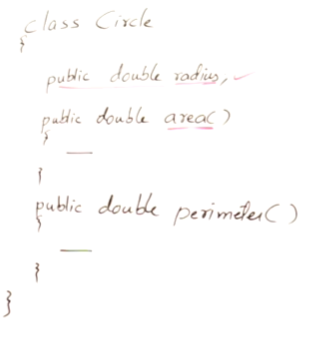 class Circle
{
public double radius,
public double area()
{
}
public double perimeter()
{
}
}